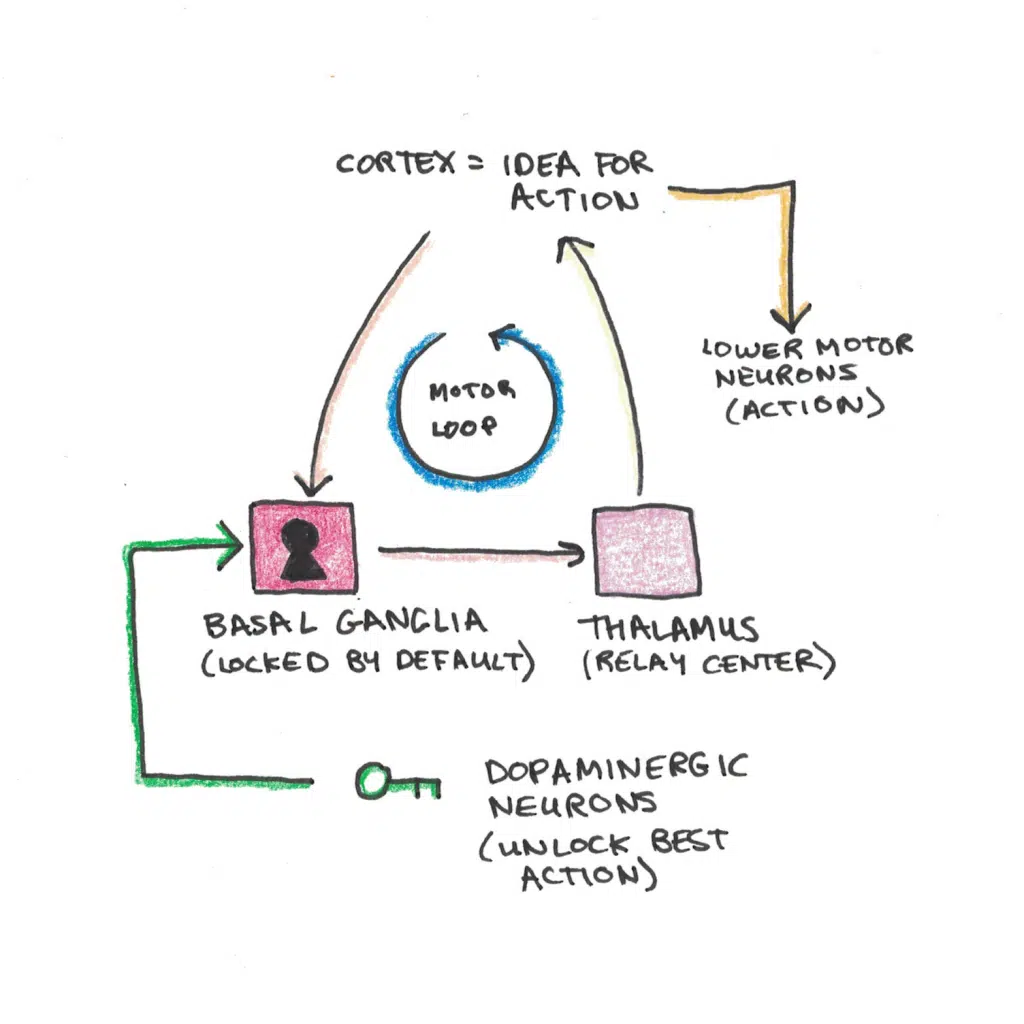 CORTEX = IDEA FOR
ACTION
LOWER MOTOR
NEURONS
(ACTION)
MOTOR
LOOP
BASAL GANGLIA
(LOCKED BY DEFAULT)
THALAMUS
(RELAY CENTER)
DOPAMINERGIC
NEURONS
(UNLOCK BEST
ACTION)